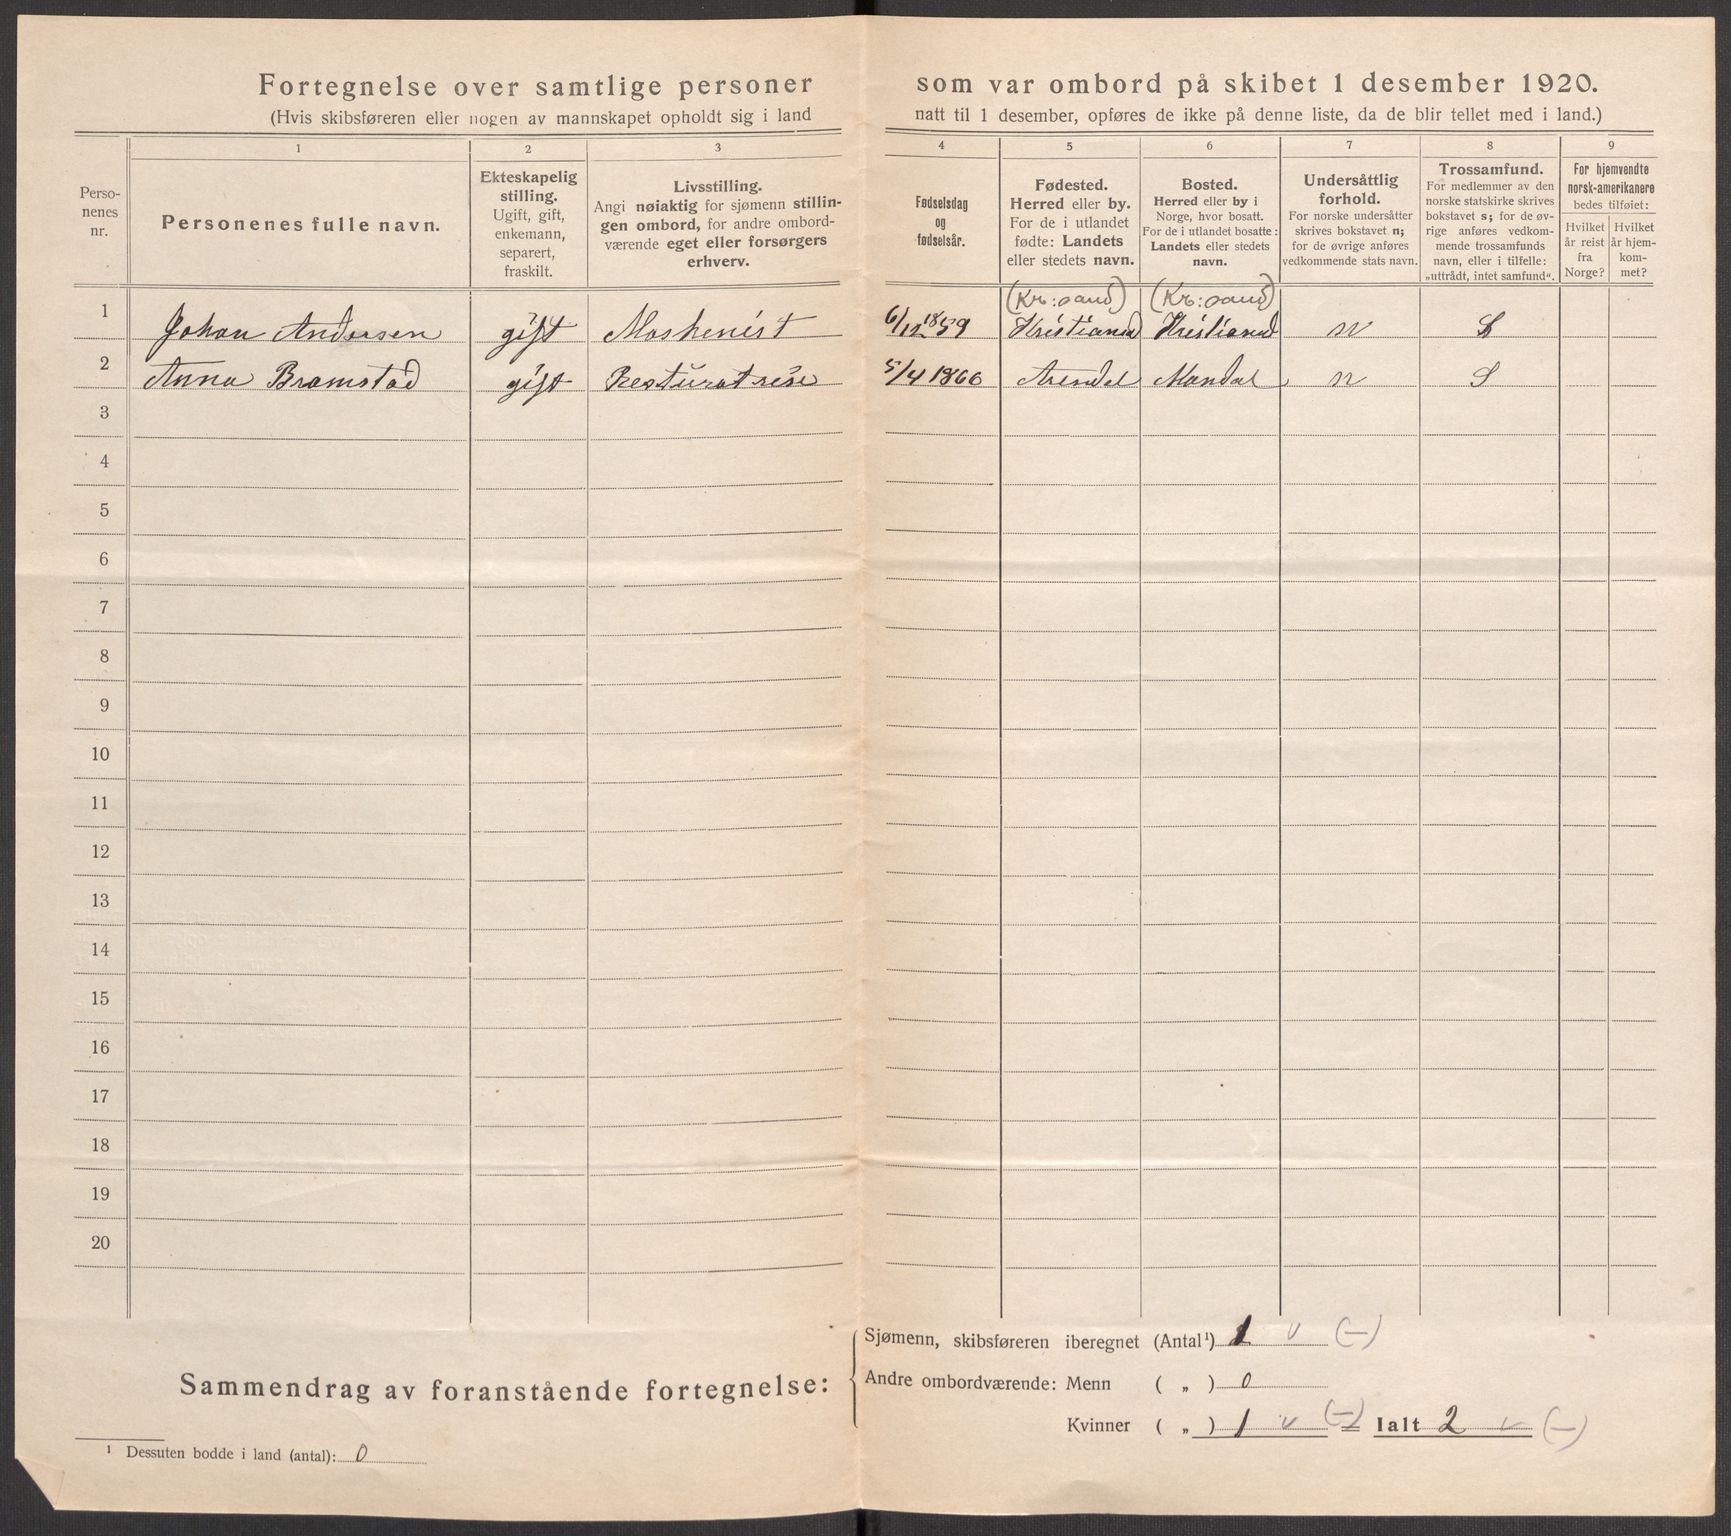 Fortegnelse over samtlige personer som var ombord på skibet 1 desember 1920.
(Hvis skibsføreren eller nogen av mannskapet opholdt sig i land natt til 1 desember, opføres de ikke på denne liste, da de blir tellet med i land.)
Perso-
nenes
nr.
1
Personenes fulle navn.
2
Ekteskapelig
stilling.
Ugift, gift,
enkemann,
separert,
fraskilt.
3
Livsstilling.
Angi nøiaktig for sjømenn stillin-
gen ombord, for andre ombord-
værende eget eller forsørgers
erhverv.
4
Fødselsdag
og
fødselsår.
5
Fødested.
Herred eller by.
For de i utlandet
fødte: Landets
eller stedets navn.
6
Bosted.
Herred eller by i
Norge, hvor bosatt.
For de i utlandet bosatte:
Landets eller stedets
navn.
7
Undersåttlig
forhold.
For norske undersåtter
skrives bokstavet n;
for de øvrige anføres
vedkommende stats navn.
8
Trossamfund.
For medlemmer av den
norske statskirke skrives
bokstavet s; for de øv-
rige anføres vedkom-
mende trossamfunds
navn, eller i tilfelle:
„uttrådt, intet samfund".
9
For hjemvendte
norsk-amerikanere
bedes tilføiet:
Hvilket
år reist
fra
Norge?
Hvilket
år hjem-
kom-
met?
(Kr:sand) (Kr:sand)
1 Johan Andersen gift Maskenist 6/12 1859 Kristiansd Kristiansd n S
2 Anna Bramstad gift Resturatrise 5/4 1866 Arendel Mandal n S
3
4
5
6
7
8
9
10
11
12
13
14
15
16
17
18
19
20
Sammendrag av foranstående fortegnelse:
Sjømenn, skibsføreren iberegnet (Antal¹) 1 v (—)
Andre ombordværende: Menn ( „ ) 0
Kvinner ( „ ) 1 v (—) Ialt 2 v (—)
¹ Dessuten bodde i land (antal): 0